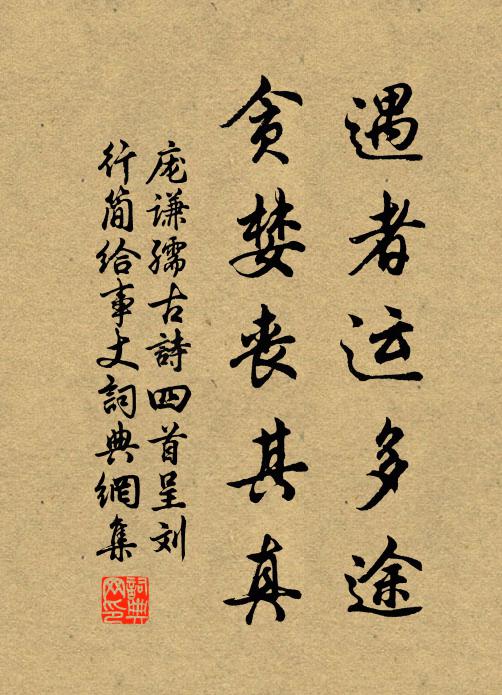 遇者运多途
贪婪丧其真
庞谦孺古詩四首呈刘
行简给事丈詞典網集
詞典网印